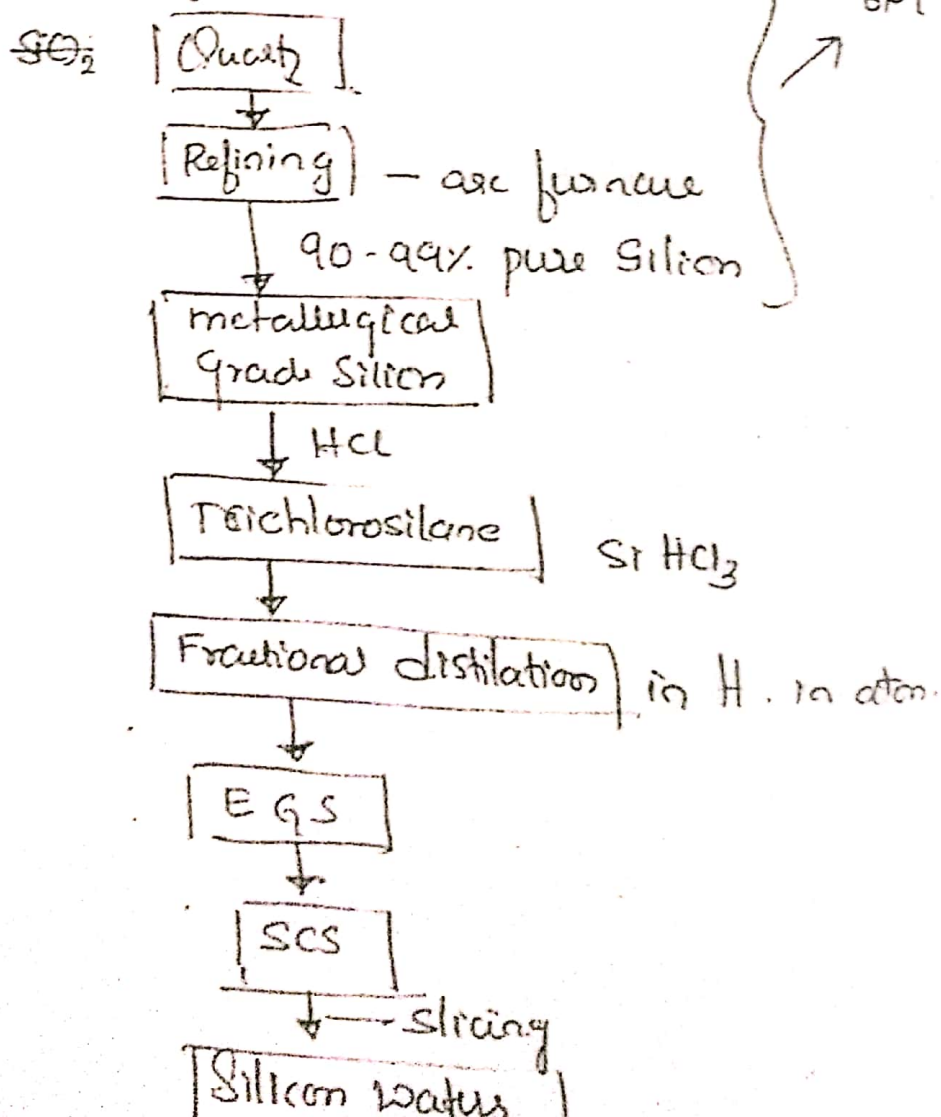 SiO2 Quartz
Refining - arc furnace
90-99% pure Silion
metallugical
Grade Silicn
HCl
Trichlorosilane
SiHCl3
Fractional distilation in H. in atm.
EGS
SCS
Slicing
Silicon Wafers